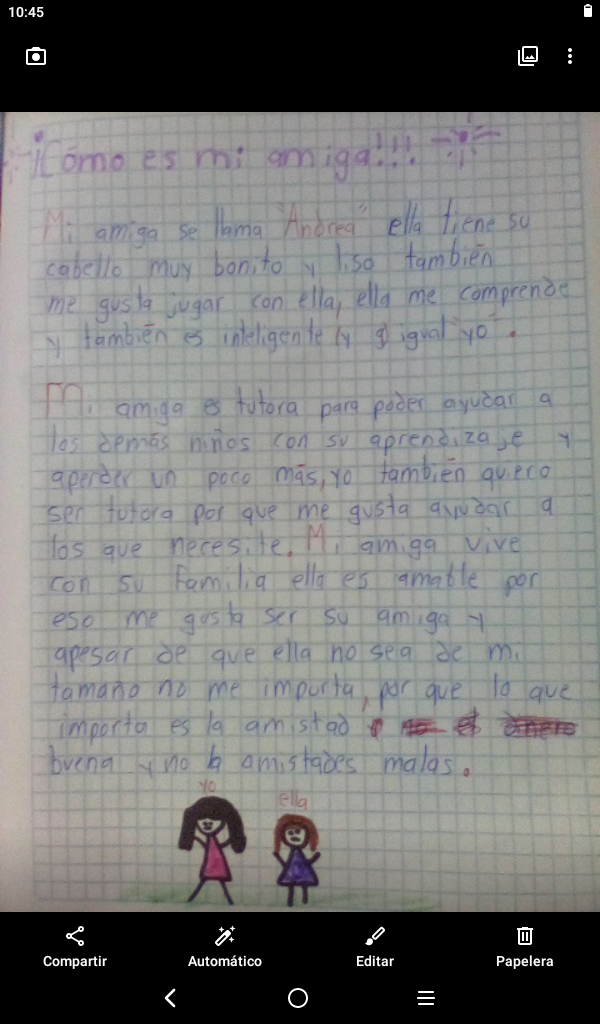 10:45
¡Cómo es mi amiga!!!
Mi amiga se llama "Andrea" ella tiene su
cabello muy bonito y liso también
me gusta jugar con ella, ella me comprende
y también es inteligente (y g) igual "yo".
Mi amiga es tutora para poder ayudar a
los demás niños con su aprendizaje y
aperder un poco más, yo también quiero
ser tutora por que me gusta ayudar a
los que necesite. Mi amiga vive
con su familia ella es amable por
eso me gusta ser su amiga y
apesar de que ella no sea de mi
tamaño no me importa, por que lo que
importa es la amistad
buena y no la amistades malas.
yo
ella
Compartir
Automático
Editar
Papelera